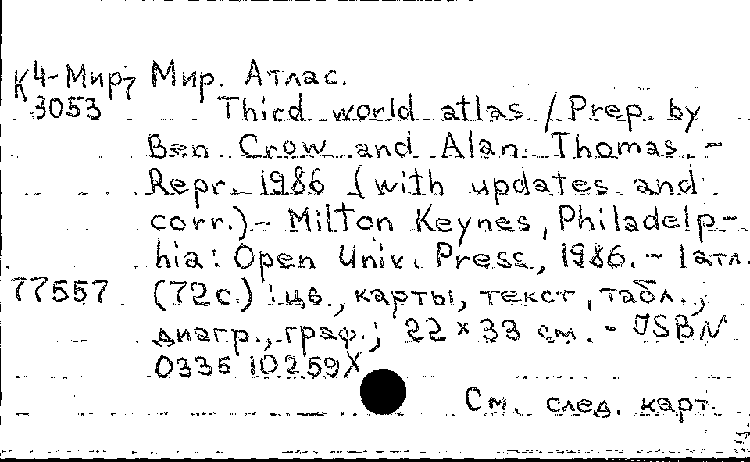 К4-Мир7 Мир. Атлас.
3053 Third world atlas / Prep. by
Ben Crow and Alan Thomas. -
Repr. 1986 (with updates and
corr.) - Milton Keynes, Philadelp-
hia: Open Univ. Press, 1986. - 1 атл.
77557 (72с.): цв., карты, текст, табл.,
диагр., граф.; 22 x 33 см. - ISBN
0335 10259X
См. след. карт.